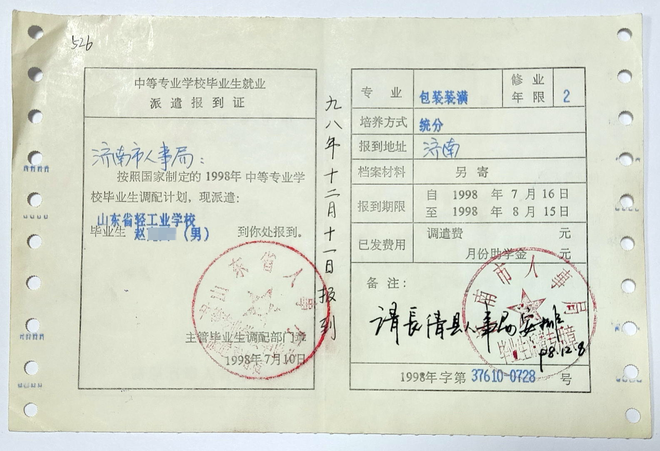 526
中等专业学校毕业生就业
派遣报到证
济南市人事局：
按照国家制定的1998年中等专业学
校毕业生调配计划，现派遣：
山东省轻工业学校
毕业生 赵 （男） 到你处报到。
主管毕业生调配部门章
1998年7月10日
山东省人
九八年十二月十一日报到
专业 包装装潢 修业年限 2
培养方式 统分
报到地址 济南
档案材料 另寄
报到期限 自1998年7月16日
至1998年8月15日
已发费用 调遣费 元
月份助学金 元
备注：
请長清县人事局安排
98.12.8
南市人事局
毕业生
1998年字第37610-0728号